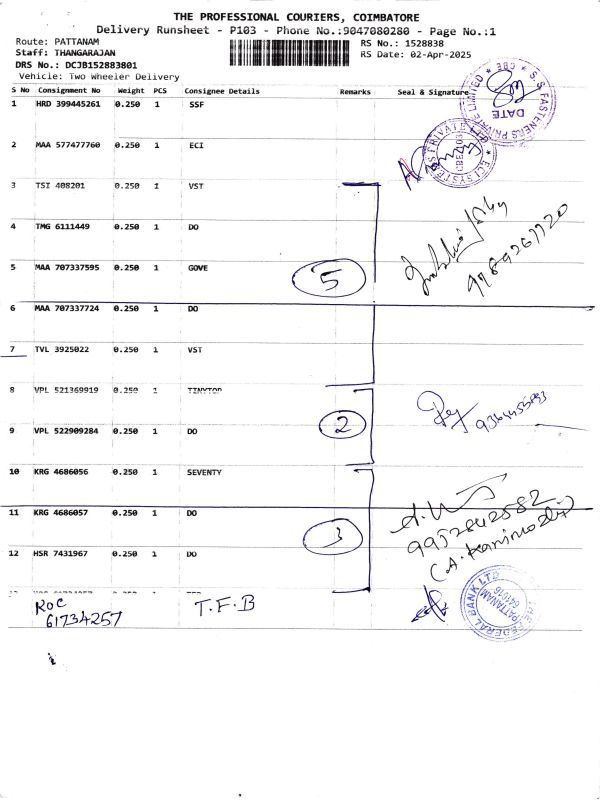 THE PROFESSIONAL COURIERS, COIMBATORE
Delivery Runsheet - P103 - Phone No.:9047080280 - Page No.:1
Route: PATTANAM
Staff: THANGARAJAN
DRS No.: DCJB152883801
Vehicle: Two Wheeler Delivery
RS No.: 1528838
RS Date: 02-Apr-2025
S No Consignment No Weight PCS Consignee Details Remarks Seal & Signature
1 HRD 399445261 0.250 1 SSF
S. S. FASTENERS PRIVATE LIMITED * CBE *
DATE
2 MAA 577477760 0.250 1 ECI
3 TSI 408201 0.250 1 VST
4 TMG 6111449 0.250 1 DO
5 MAA 707337595 0.250 1 GOVE
5
6 MAA 707337724 0.250 1 DO
7 TVL 3925022 0.250 1 VST
8 VPL 521369919 0.250 1 TINYTOP
9 VPL 522909284 0.250 1 DO
2
10 KRG 4686056 0.250 1 SEVENTY
11 KRG 4686057 0.250 1 DO
9952842582
12 HSR 7431967 0.250 1 DO
3
ROC
61734257
T.F.B
THE FEDERAL BANK LTD
PATTANAM
641016